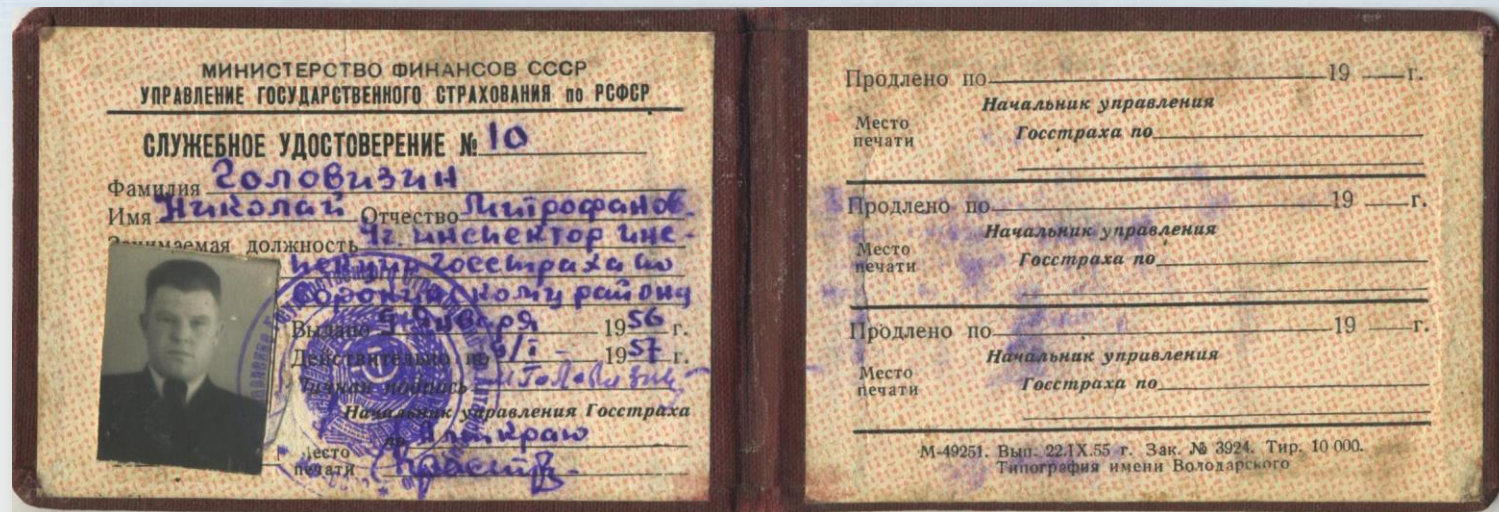 МИНИСТЕРСТВО ФИНАНСОВ СССР
УПРАВЛЕНИЕ ГОСУДАРСТВЕННОГО СТРАХОВАНИЯ по РСФСР
СЛУЖЕБНОЕ УДОСТОВЕРЕНИЕ № 10
Фамилия Головизин
Имя Николай Отчество Митрофанов.
Занимаемая должность Ст. инспектор инс-
пекции Госстраха по
Сорокинскому району
Выдано 9 Января 1956 г.
Действительно по 9/I - 1957 г.
Личная подпись Головизин
Начальник управления Госстраха
по Алткраю
Место
печати
Продлено по 19 г.
Начальник управления
Место
печати
Госстраха по
Продлено по 19 г.
Начальник управления
Место
печати
Госстраха по
Продлено по 19 г.
Начальник управления
Место
печати
Госстраха по
М-49251. Вып. 22.IX.55 г. Зак. № 3924. Тир. 10 000.
Типография имени Володарского